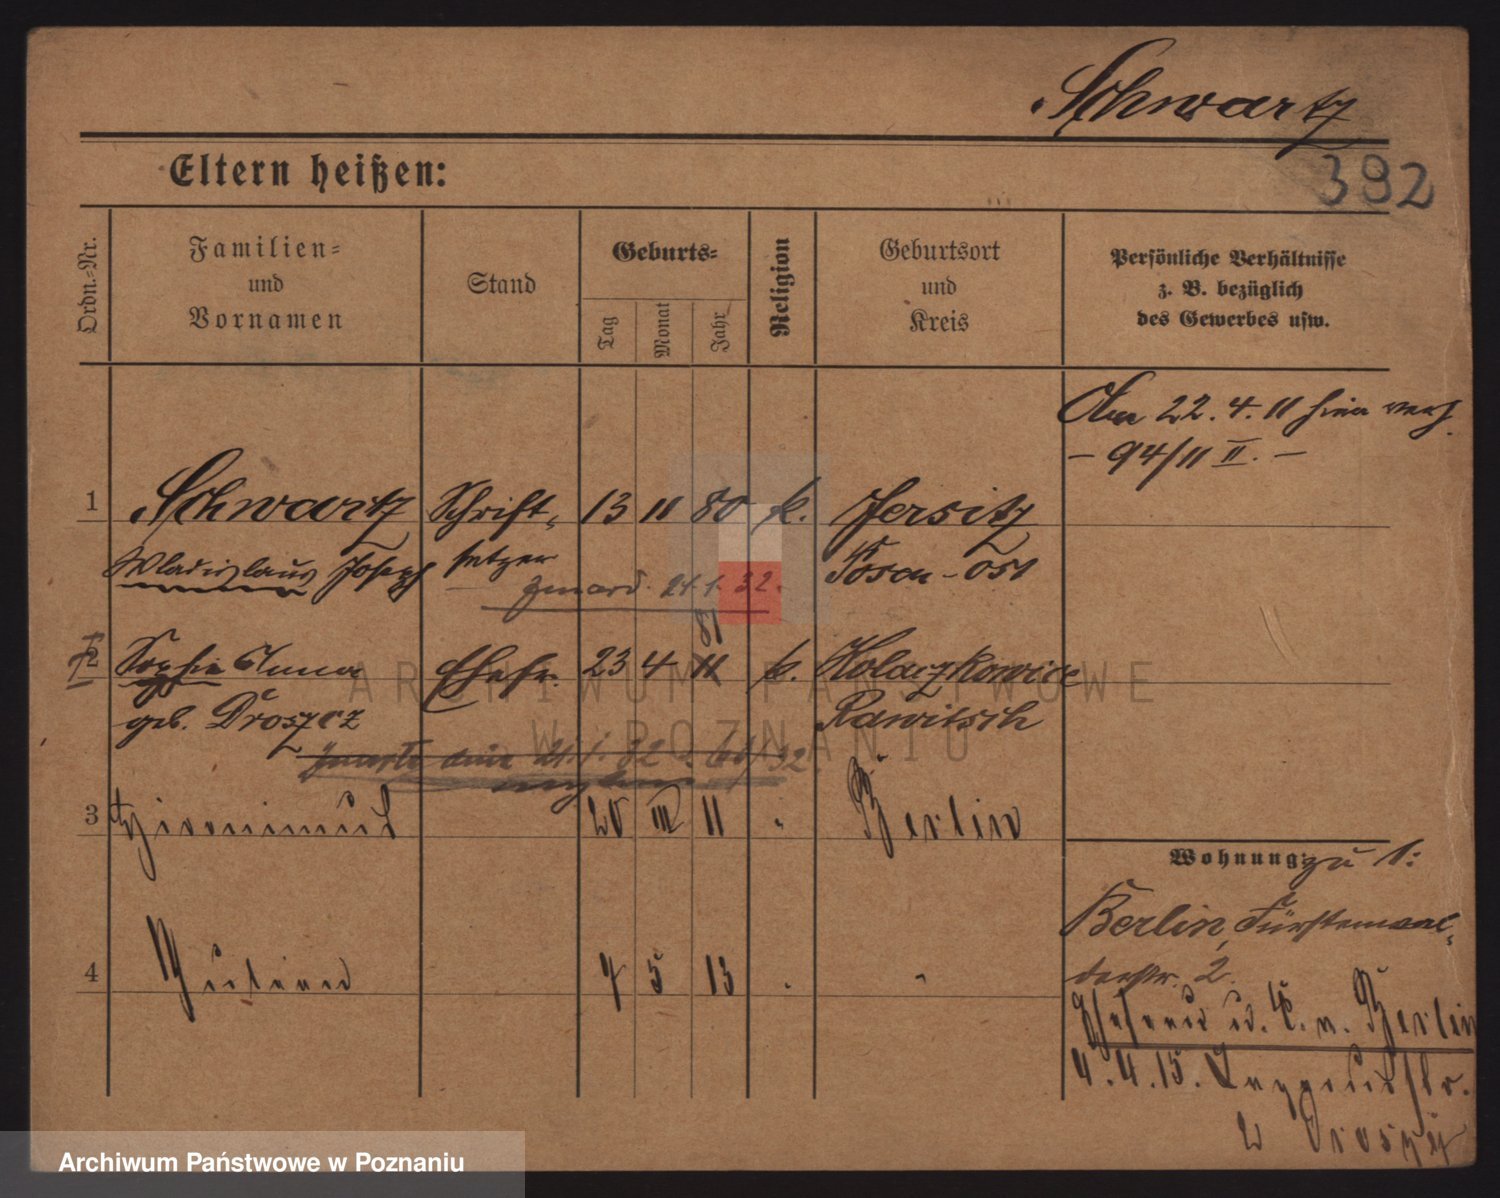 Schwartz
392
Eltern heißen:
Ordn.-Nr.
Familien- und Vornamen
Stand
Geburts-
Tag
Monat
Jahr
Religion
Geburtsort und Kreis
Persönliche Verhältnisse
z. B. bezüglich
des Gewerbes usw.
22. 4. 11 hier
— 94/11 II. —
1 Schwartz Schrift- 13 11 80 k. Jersitz
Wladislaus Joseph setzer Posen-Ost
zmarł. 21. 1. 32.
81
2 Sophie Anna Ehefr. 23 4 11 k. Kolaczkowice
geb. Droszcz Rawitsch
3 Hieronimus 20 III 11 " Berlin
Wohnung: zu 1:
Berlin, Fürstenwal-
derstr. 2.
4 5 13 " "
Ehefrau u. K. n. Berlin
4. 4. 15.
Archiwum Państwowe
w Poznaniu
Archiwum Państwowe w Poznaniu